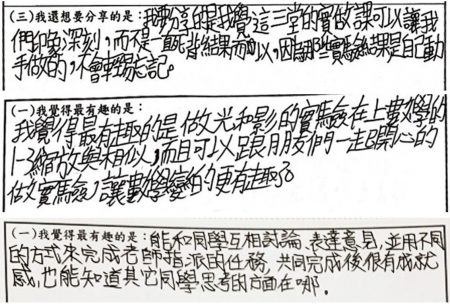 (三)我還想要分享的是:我要分享的是我覺得這三堂的實做課可以讓我
們印象深刻,而不是一直背結果而以,因為那些實驗結果是自己動
手做的,不會輕易忘記。
(一)我覺得最有趣的是:
我覺得最有趣的是做光和影的實驗在上數學的
1-3縮放與相似,而且可以跟朋友們一起開心的
做實驗,讓數學變的更有趣了
(一)我覺得最有趣的是:能和同學互相討論、表達意見,並用不同
的方式來完成老師指派的任務,共同完成後很有成就
感,也能知道其它同學思考的方面在哪。